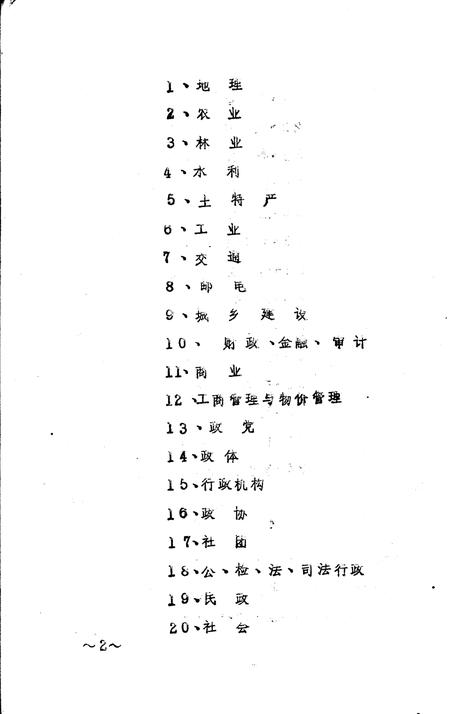 1、地理
2、农业
3、林业
4、水利
5、土特产
6、工业
7、交通
8、邮电
9、城乡建设
10、财政、金融、审计
11、商业
12、工商管理与物价管理
13、政党
14、政体
15、行政机构
16、政协
17、社团
18、公、检、法、司法行政
19、民政
20、社会
～2～